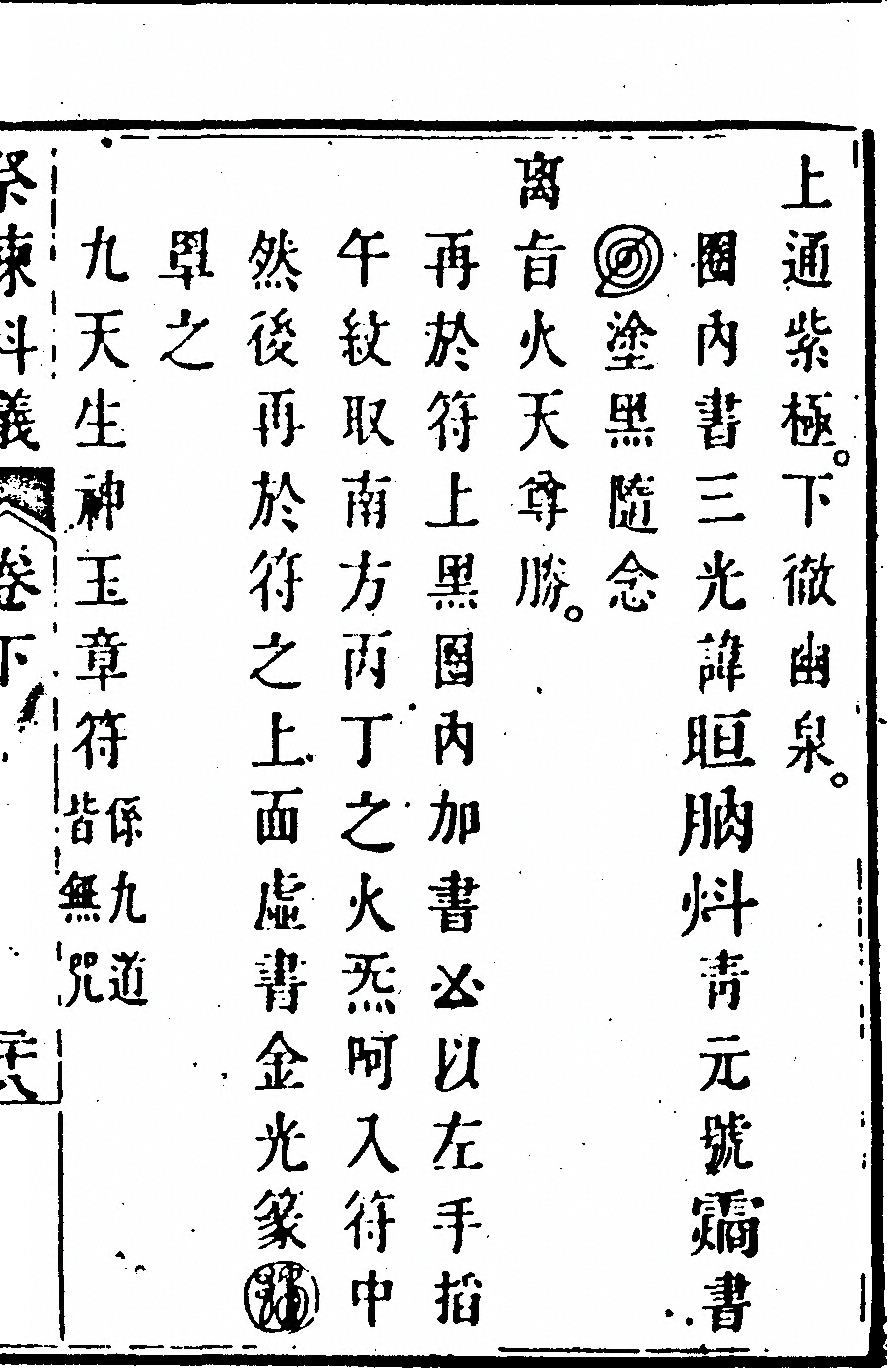 上通紫極。下徹幽泉。
圈內書三光諱晅朒炓青元號書
塗黑隨念
离旨火天尊勝。
再於符上黑圈內加書以左手掐
午紋取南方丙丁之火炁呵入符中
然後再於符之上面虛書金光篆
罩之
九天生神玉章符係九道
皆無咒
祭煉科義 卷下 二十八